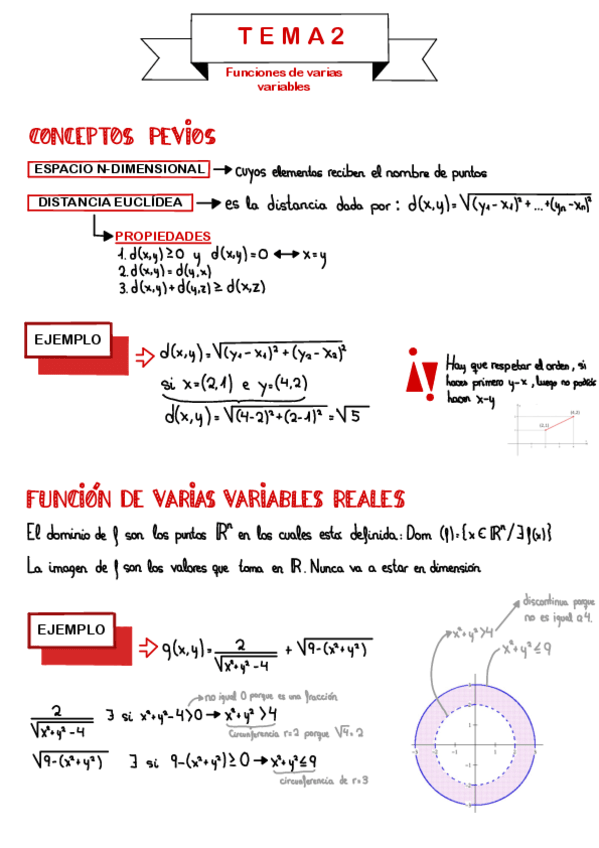 TEMA 2
Funciones de varias
variables
CONCEPTOS PEVIOS
ESPACIO N-DIMENSIONAL → cuyos elementos reciben el nombre de puntos
DISTANCIA EUCLÍDEA → es la distancia dada por: d(x,y)=√(y₁-x₁)²+...+(yₙ-xₙ)²
PROPIEDADES
1. d(x,y)≥0 y d(x,y)=0 ↔ x=y
2. d(x,y)=d(y,x)
3. d(x,y)+d(y,z)≥d(x,z)
EJEMPLO ⇒ d(x,y)=√(y₁-x₁)²+(y₂-x₂)²
si x=(2,1) e y=(4,2)
d(x,y)=√(4-2)²+(2-1)² = √5
¡! Hay que respetar el orden, si
hacen primero y-x, luego no podéis
hacen x-y
(4,2)
(2,1)
FUNCIÓN DE VARIAS VARIABLES REALES
El dominio de f son los puntos ℝⁿ en los cuales esta definida: Dom (f)={x∈ℝⁿ/∃f(x)}
La imagen de f son los valores que toma en ℝ. Nunca va a estar en dimensión
EJEMPLO ⇒ g(x,y)= 2/√x²+y²-4 + √9-(x²+y²)
discontinua porque
no es igual a 4.
x²+y²>4
x²+y²≤9
no igual 0 porque es una fracción
2/√x²+y²-4 ∃ si x²+y²-4>0 → x²+y²>4
Circunferencia r=2 porque √4=2
√9-(x²+y²) ∃ si 9-(x²+y²)≥0 → x²+y²≤9
circunferencia de r=3